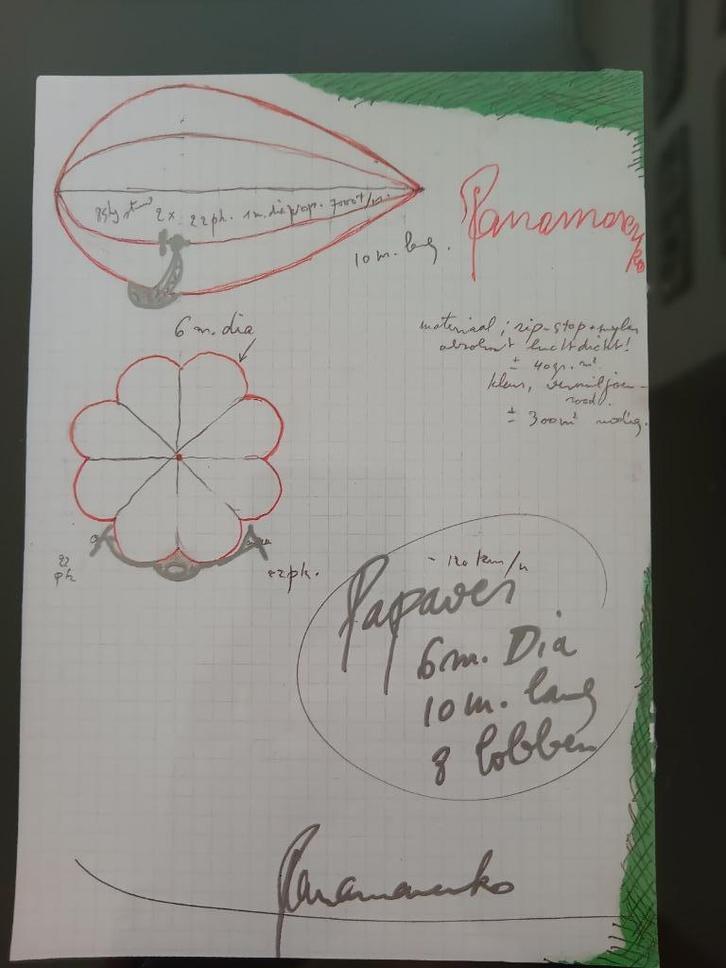 2 x 22 pk. 1 m. dia prop. 7000 t/m.
10 m. lang.
Panamaren
ko
6 m. dia
materiaal; rip-stop + mylar
absoluut luchtdicht!
± 40 gr. m²
klaur, vermiljoen-
rood.
± 300 m² nodig.
22
pk
22 pk.
- 120 km/u
Papaver
6 m. Dia
10 m. lang
8 lobben
Panamarenko